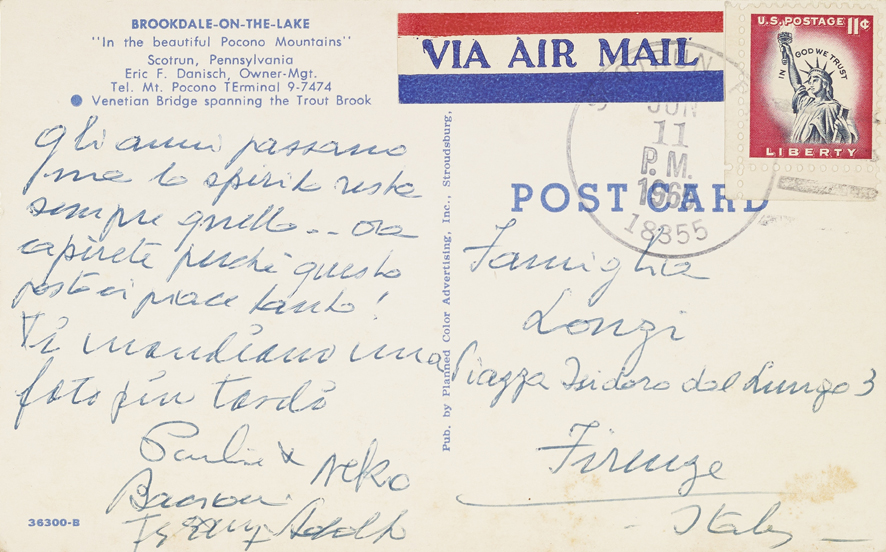 BROOKDALE-ON-THE-LAKE
"In the beautiful Pocono Mountains"
Scotrun, Pennsylvania
Eric F. Danisch, Owner-Mgt.
Tel. Mt. Pocono TErminal 9-7474
Venetian Bridge spanning the Trout Brook
gli anni passano
ma lo spirito resta
sempre quello.. ora
capirete perchè questo
posto ci piace tanto!
Vi mandiamo una
foto più tardi
Pauline & Neko
Bacioni
36300-B
Pub. by Planned Color Advertising, Inc., Stroudsburg,
VIA AIR MAIL
U.S. POSTAGE 11¢
IN GOD WE TRUST
LIBERTY
JUN
11
P.M.
18355
POST CARD
Famiglia
Longi
Piazza Isidoro del Lungo 3
Firenze
Italy